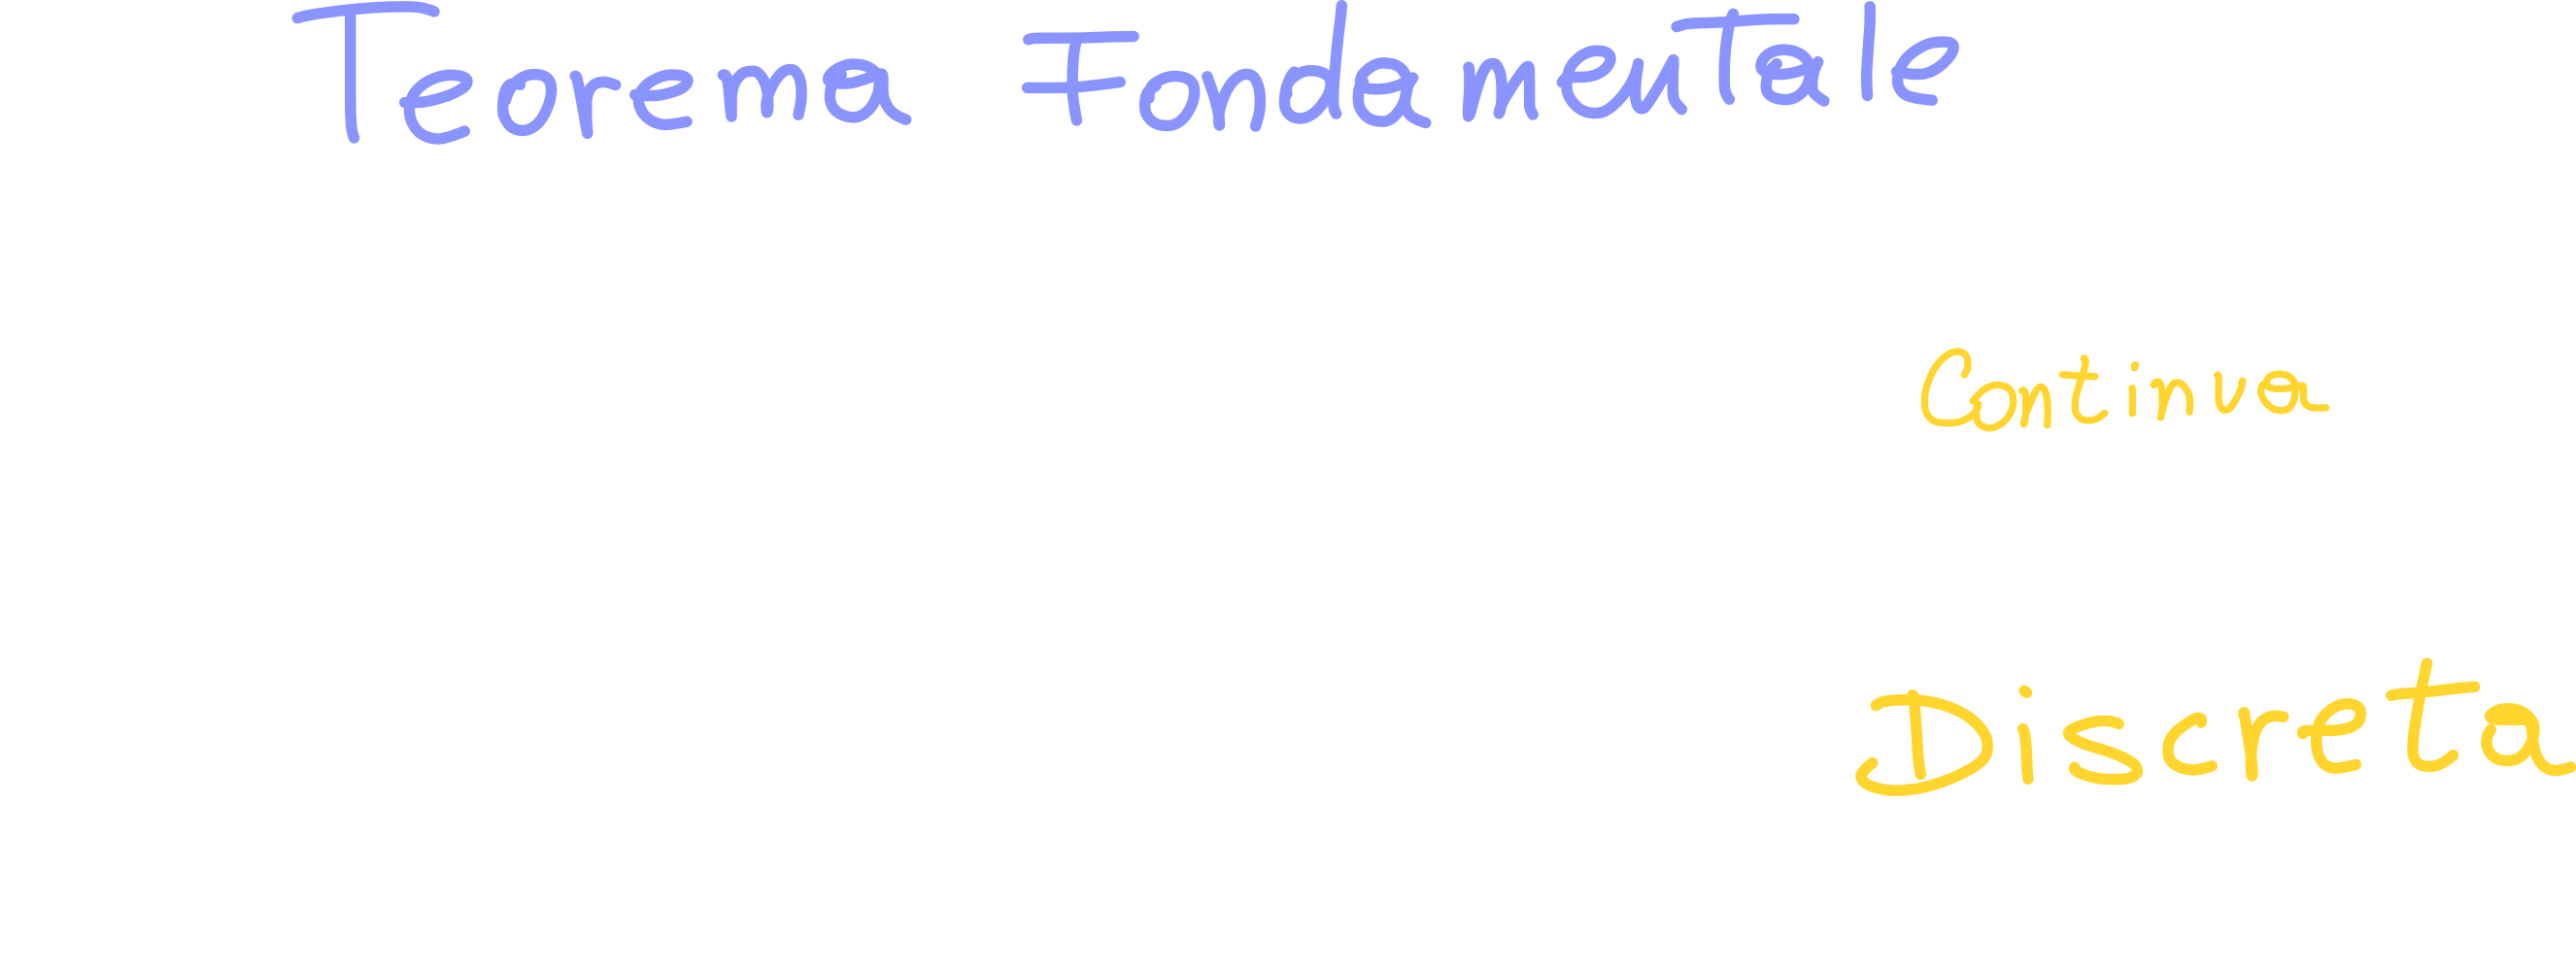 Teorema Fondamentale
Continua
Discreta